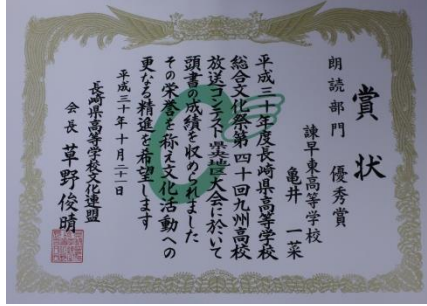 賞状
朗読部門　優秀賞
諫早東高等学校
亀井　一菜
平成三十年度長崎県高等学校
総合文化祭第四十回九州高校
放送コンテスト県央地区大会に於いて
頭書の成績を収められました
その栄誉を称え文化活動への
更なる精進を希望します
平成三十年十月二十一日
長崎県高等学校文化連盟
会長　草野俊晴